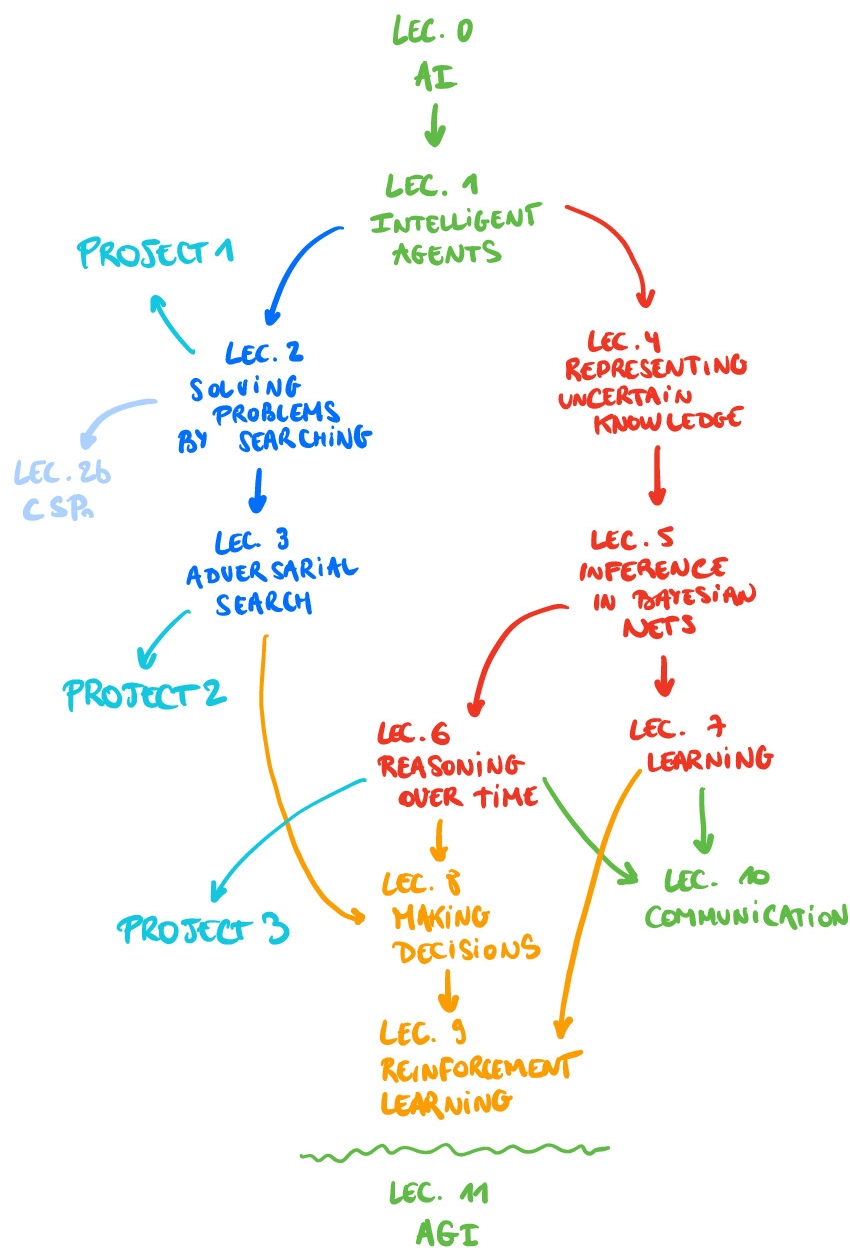 LEC. 0
AI
LEC. 1
INTELLIGENT
AGENTS
PROJECT 1
LEC. 2
SOLVING
PROBLEMS
BY SEARCHING
LEC. 2b
CSPs
LEC. 3
ADVERSARIAL
SEARCH
PROJECT 2
LEC. 4
REPRESENTING
UNCERTAIN
KNOWLEDGE
LEC. 5
INFERENCE
IN BAYESIAN
NETS
LEC. 6
REASONING
OVER TIME
LEC. 7
LEARNING
PROJECT 3
LEC. 8
MAKING
DECISIONS
LEC. 10
COMMUNICATION
LEC. 9
REINFORCEMENT
LEARNING
LEC. 11
AGI